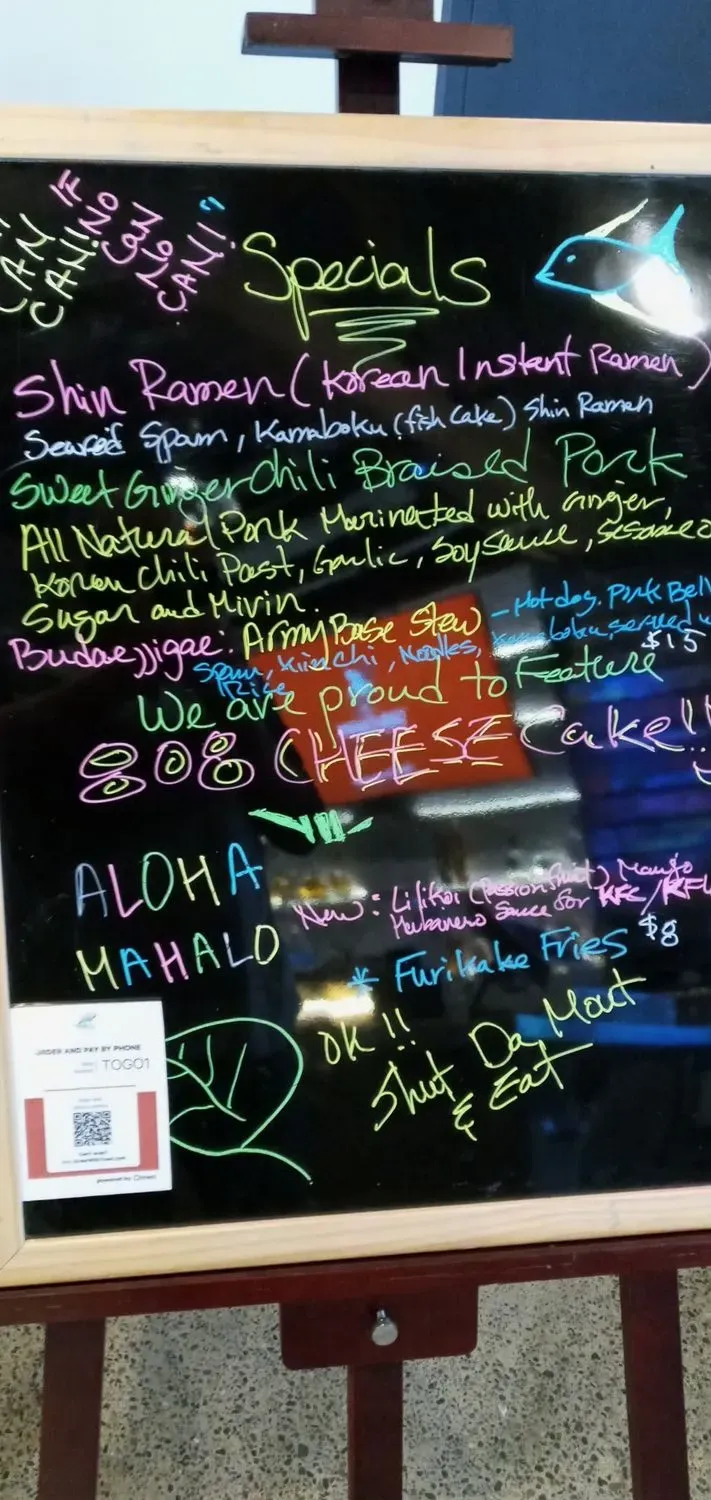 CAN
CAN!
IF
NO
CAN
NO
CAN!"
Specials
Shin Ramen (Korean Instant Ramen)
Seared Spam, Kamaboku (fish cake) Shin Ramen
Sweet Ginger Chili Braised Pork
All Natural Pork Marinated with Ginger,
Korean Chili Past, Garlic, Soy Sauce, Sesame O
Sugar and Mirin.
Budaejjigae: Army Base Stew - Hot dog. Pork Bell
Spam, Kimchi, Noodles, Kamaboku, served w
Rice $15
We are proud to Feature
808 CHEESE Cake!!
ALOHA
MAHALO
New: Lilikoi (Passion Fruit) Mango
Habanero Sauce for KFC/KFW
* Furikake Fries $8
OK!!
Shut Da Mout
& Eat
ORDER AND PAY BY PHONE
TOGO1
powered by